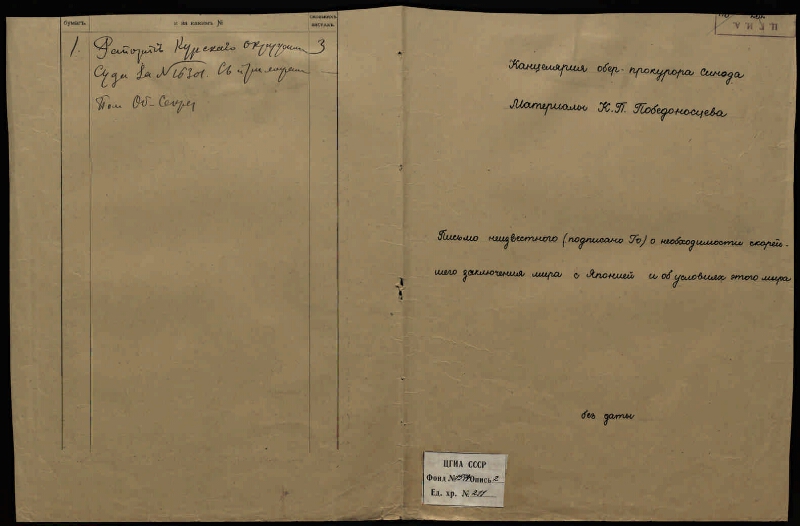 бумагъ.
и за какимъ №
листахъ.
1. Рапортъ Курскаго окружн 3
Суда За № 16301. Съ
Канцелярия обер-прокурора синода
Материалы К.П. Победоносцева
Письмо неизвестного (подписано Го) о необходимости скарей-
шего заключения мира с Японией и об условиях этого мира
без даты
ЦГИА СССР
Фонд № 1574 Опись 2
Ед. хр. № 211